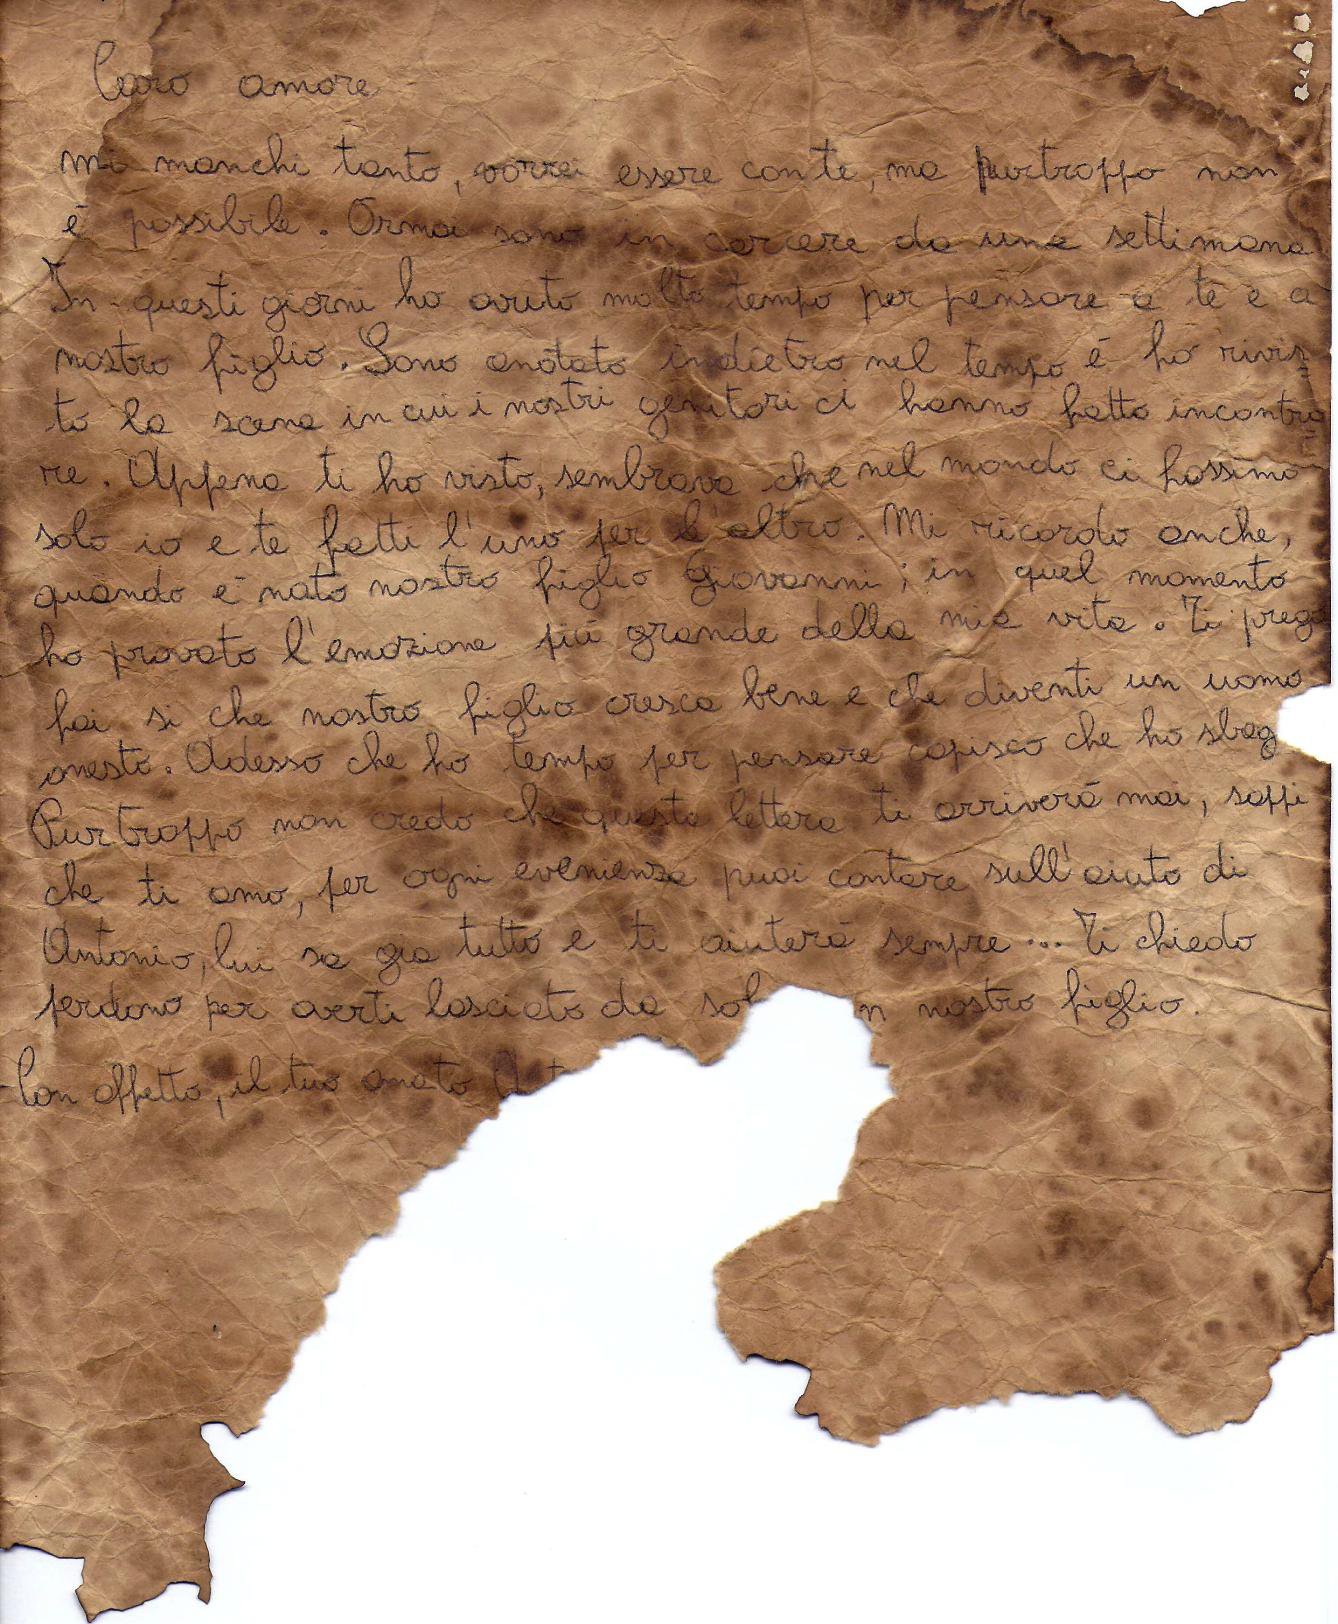 Caro amore
Mi manchi tanto, vorrei essere con te, ma purtroppo non
é possibile. Ormai sono in carcere da una settimana
In questi giorni ho avuto molto tempo per pensare a te e a
nostro figlio. Sono andato indietro nel tempo é ho rivis=
to la scena in cui i nostri genitori ci hanno fatto incontra=
re. Appena ti ho visto, sembrava che nel mondo ci fossimo
solo io e te fatti l'uno per l'altro. Mi ricordo anche,
quando é nato nostro figlio Giovanni; in quel momento
ho provato l'emozione piú grande della mia vita. Ti prego
fai si che nostro figlio cresca bene e che diventi un uomo
onesto. Adesso che ho tempo per pensare capisco che ho sbag
Purtroppo non credo che questa lettera ti arriverá mai, sappi
che ti amo, per ogni evenienza puoi contare sull'aiuto di
Antonio, lui sa gia tutto e ti aiuterá sempre... Ti chiedo
perdono per averti lasciato da sol n nostro figlio.
Con affetto, il tuo amato